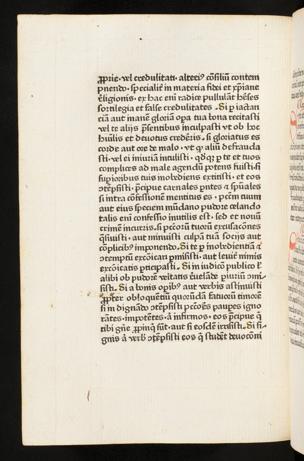 ꝓprie· vel credulitati· alteriꝰ consiliū contem
pnendo· specialit̄ in materia fidei et xp̄iane
religionis· ex hac eni radice pullulāt hēses
sortilegia et false credulitates· Si p iactan
ciā aut inanē gloriā opa tua bona recitasti
vel te alijs p̄sentibus inculpasti vt ob hoc
huilis et deuotus crederis· si gloriatus es
corde aut ore de malo· vt
sti· vel ei iniuriā intulisti· te et tuos
complices ad male agendū potens fuisti· si
supioribus tuis inobediens extitisti· et eos
ꝯtēpsisti· p̄cipue carnales pntes
si intra cōfessionē mentitus es· pctm tuum
aut eius speciem pudore celando
talis eni confessio inutilis est· sed et nouū
crimē incurris· si pctoū tuoꝝ excusacōnes
q̄siuisti· aut minuisti culpā tuā socijs aut
cōplicibꝰ imponendo· Si te p inobedientiā
ꝯtemptū excōicari pmisisti· aut leuit̄ nimis
excōicatis pticipasti· Si in iudicio publico
alibi ob pudorē veritatis
sisti· Si a bonis opibꝰ aut verbis astinuisti
ꝓpter obloquentiū quorūdā fatuoꝝ timorē
si in dignādo ꝯtēpsisti pctores paupes igno
rantes· impotētes· infirmos· eos p̄cipue q̄
tibi ꝓpinq sūt· aut si eosdē irrisisti· Si si-
gnis verb ꝯtēpsisti eos q̄ studēt deuocōni